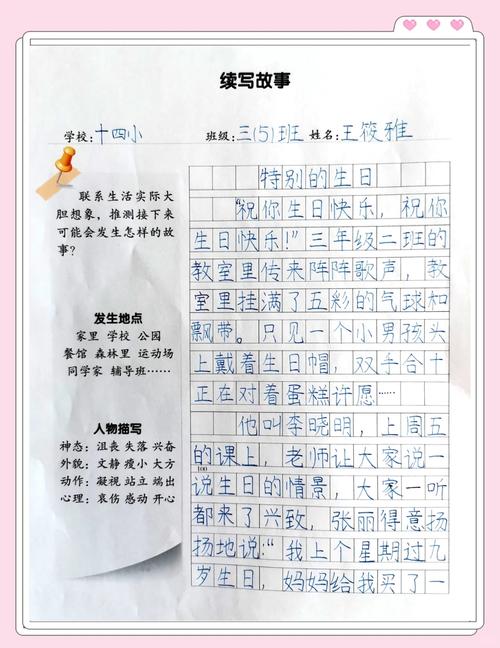 续写故事
学校:十四小 班级:三(5)班 姓名:王筱雅
联系生活实际大
胆想象，推测接下来
可能会发生怎样的故
事?
发生地点
家里 学校 公园
餐馆 森林里 运动场
同学家 辅导班……
人物描写
神态：沮丧 失落 兴奋
外貌：文静 瘦小 大方
动作：凝视 站立 端出
心理：哀伤 感动 开心
特别的生日
“祝你生日快乐，祝你
生日快乐!”三年级二班的
教室里传来阵阵歌声，教
室里挂满了五彩的气球和
飘带。只见一个小男孩头
上戴着生日帽，双手合十
正在对着蛋糕许愿……
他叫李晓明，上周五
的课上，老师让大家说一
100
说生日的情景，大家一听
都来了兴致，张丽得意扬
扬地说：“我上个星期过九
岁生日，妈妈给我买了一